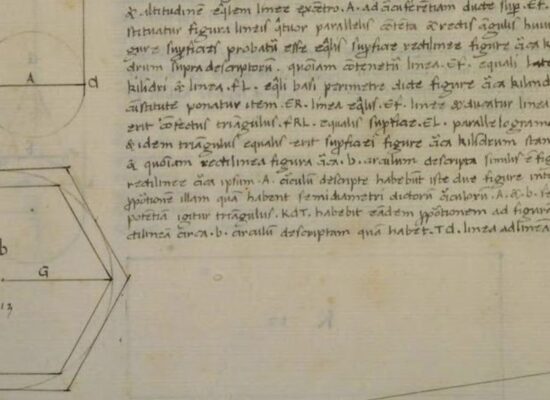 & altitudinē eq̄lem linee ex cētro .A. ad circūferētiam ducte sup .Ef.
stituatur figura lineis q̄tuor parallelis cōtēta & rectis āgulis huiu
gure sup̄ficies probatū esse eq̄lis sup̄ficie rectilinee figure c̄ca k
drum supra descriptorū . quoniam cōtenetū linea .Ef. equali late
kilīdri & linea .fL. eq̄li basi perimetre dicte figure c̄ca kilīnd
cūstitute ponatur item .ER. linea eq̄lis .Ef. linee & ducatur linea
erit cōfectus triāgulus .fRL. equalis sup̄ficie .EL. parallelogram
& idem triāgulus equalis erit sup̄ficiei figure c̄ca kilīdrum stan
& quoniam rectilinea figura c̄ca .b. circulum descripta similis ē fig
rectilinee c̄ca ipsum .A. circulū descripte habebūt iste due figure int
p̄portione illam quā habent semidiametri dictorū circulorū .A. & .b.
potētia igitur triāgulus .KdT. habebit eādem p̄portionem ad figure
ctilineā circa .b. circulū descriptam quā habet .TD. linea ad lineā
A
d
b
G
13